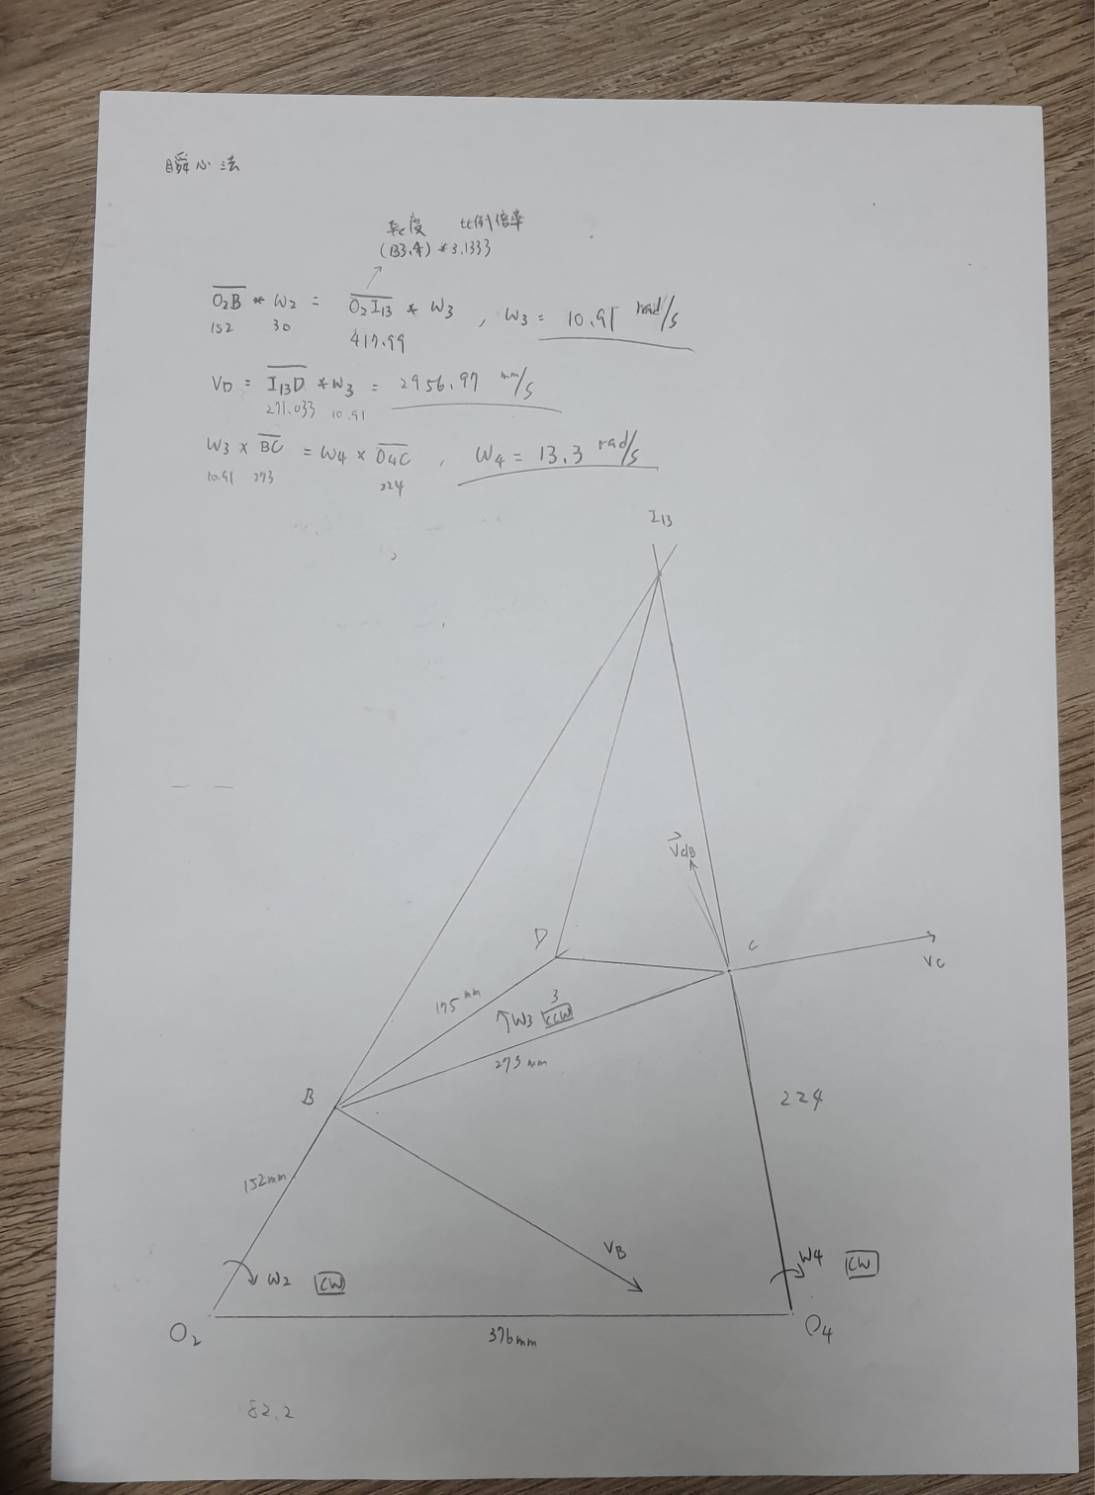 瞬心法
長度 比例倍率
(133.4) * 3.1333
O2B * W2 = O2I13 * W3 , W3 = 10.91 rad/s
152 30 417.99
VD = I13D * W3 = 2956.97 mm/s
271.033 10.91
W3 × BC = W4 × O4C , W4 = 13.3 rad/s
10.91 273 224
I13
Vcb
D C
VC
175mm
W3 CCW 3
273mm
B
224
152mm
VB
W2 CW
W4 CW
O2 O4
376mm
82.2